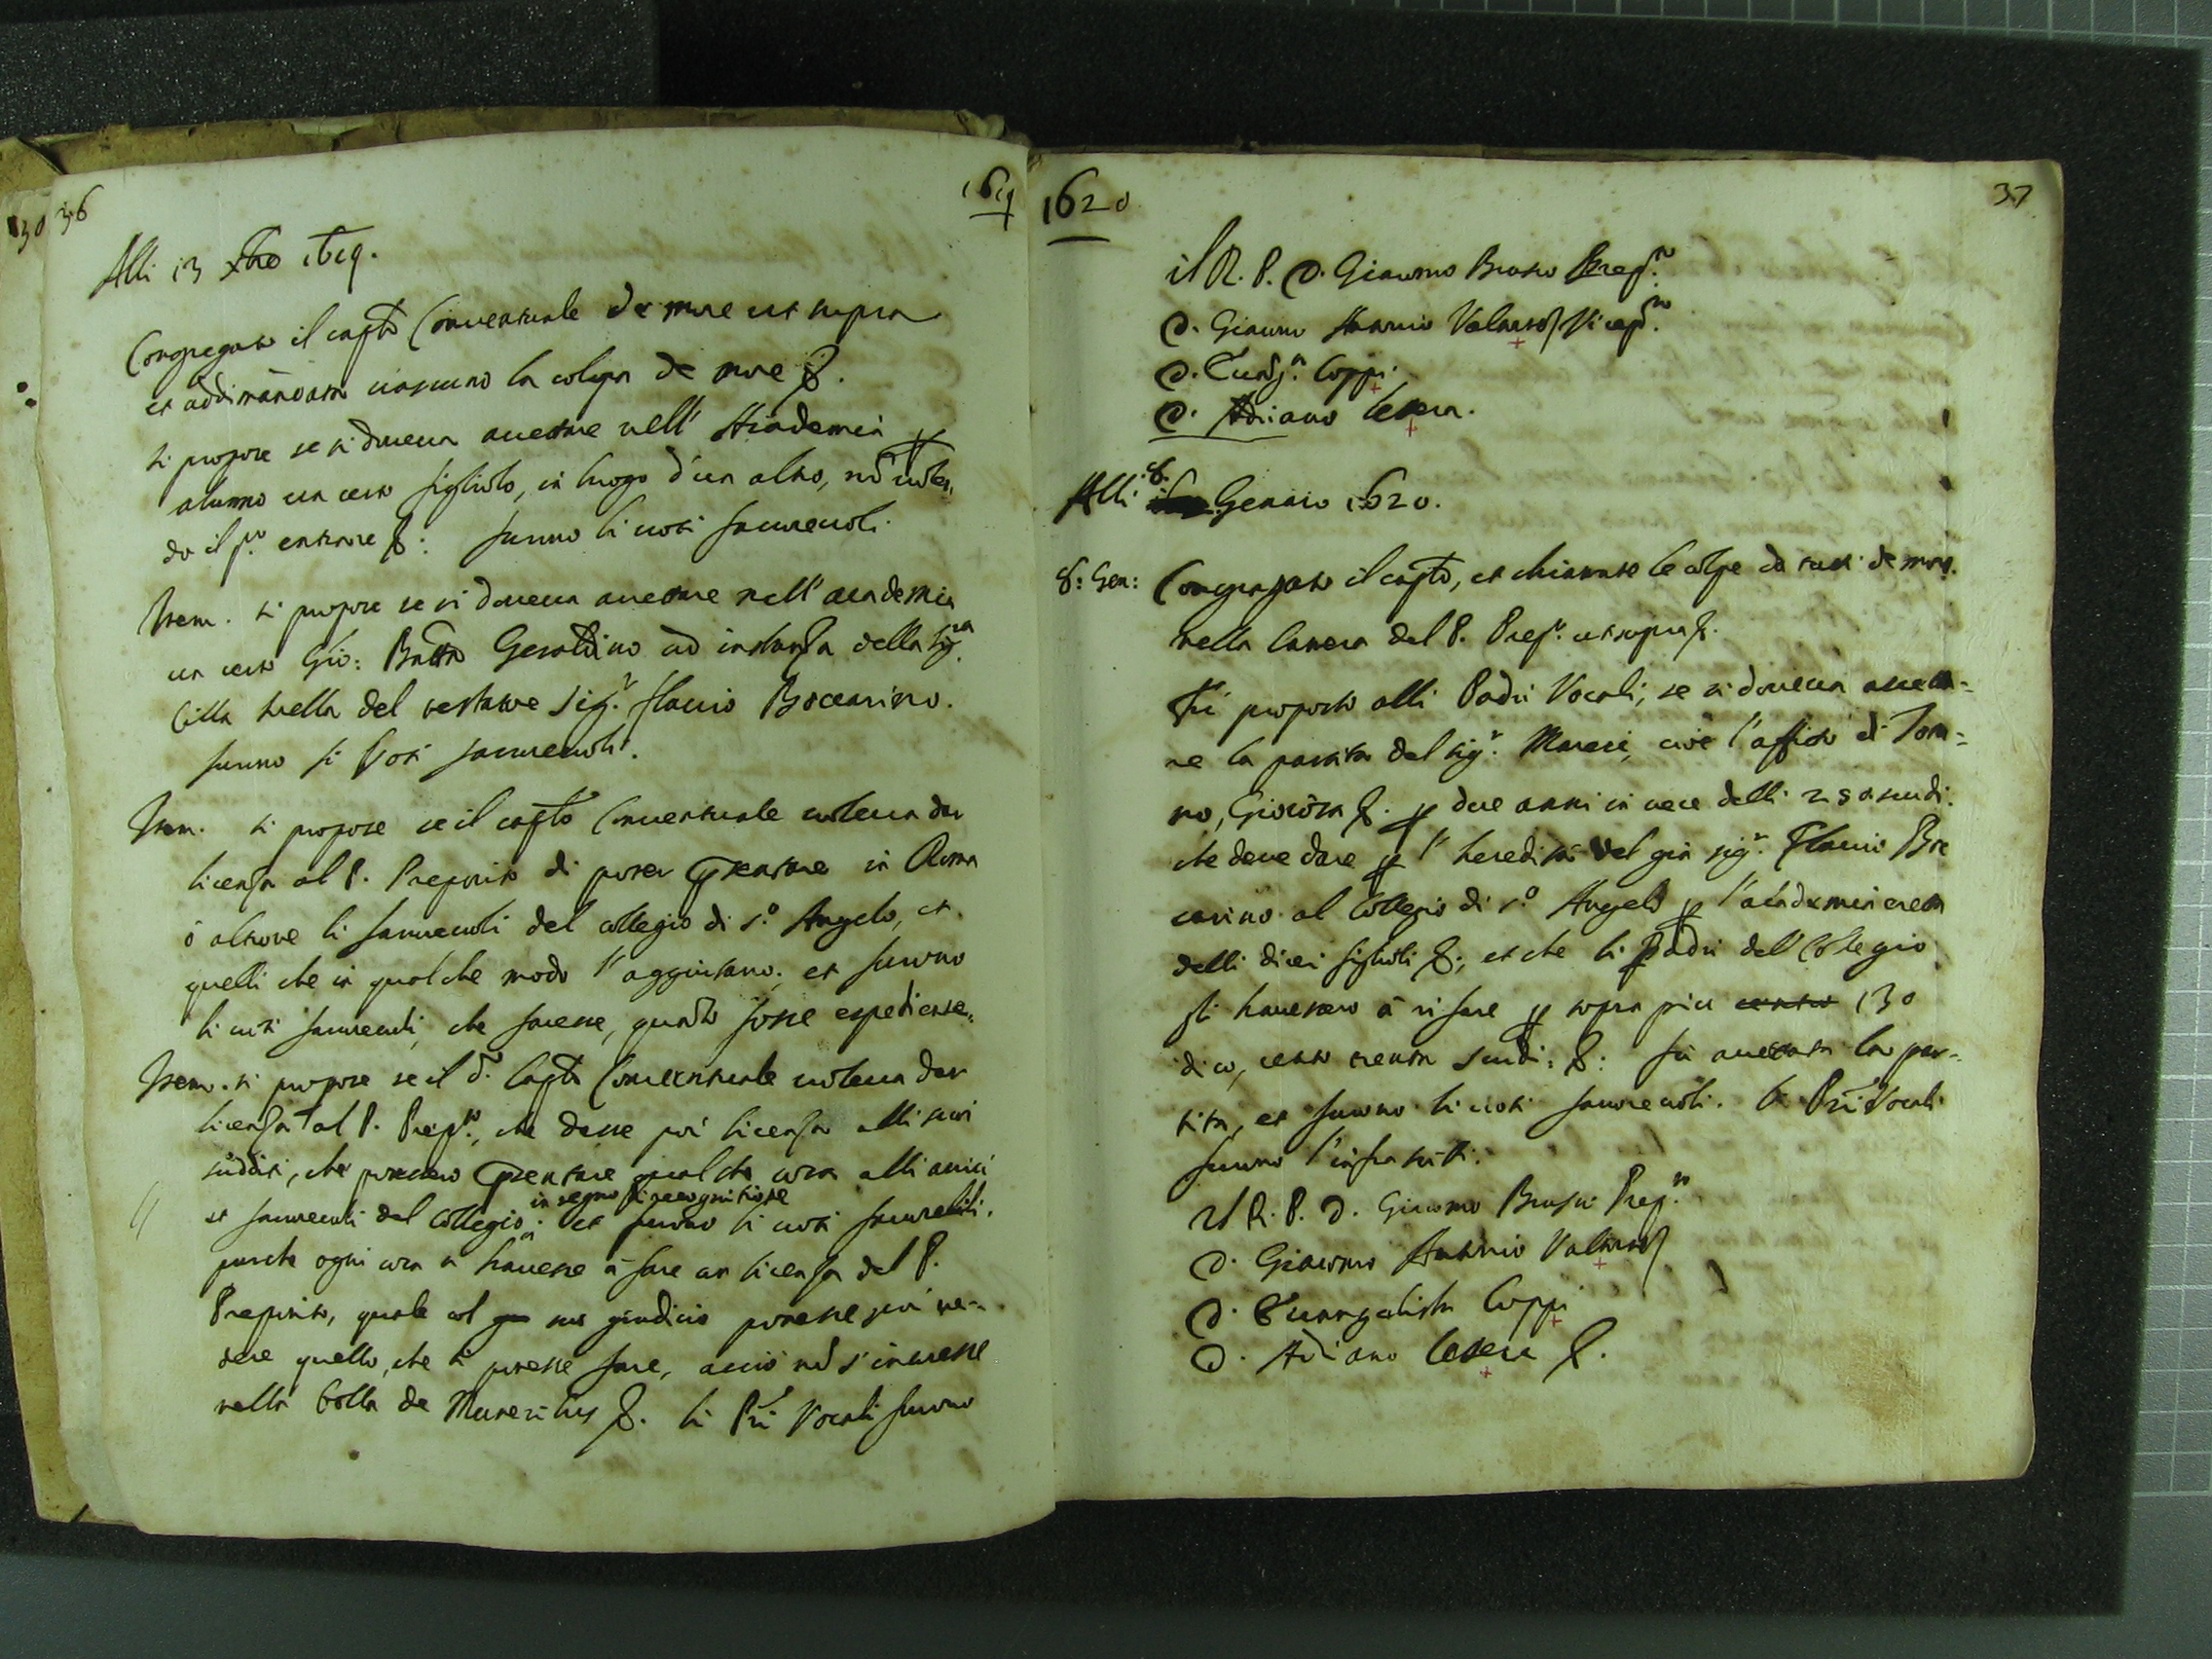 30 36
1619
Alli 13 xbre 1619.
Congregato il capto Conventuale de more ut supra
et addimandata ciascuno la colpa de more &.
si propose se si doveva accettare nell' Academia p
alunno un certo figliolo, in luogo d'un altro, nō volen,
do il po. entrare &: furno li voti favorevoli.
Item. si propose se si doveva accettare nell' academia
un certo Gio: Batta Geraldino ad instanza della sigra
Cilla sorella del testatore Sigr. Flavio Boccarino.
furno li Voti favorevoli.
Item. si propose se il capto Conventuale voleva dar
licenza al P. Preposito di poter pſentare in Roma
ò altrove li favorevoli del collegio di so. Angelo, et
quelli che in qualche modo l'aggiutano: et furono
li voti favorevoli, che facesse, quanto fosse espediente.
Item. si propose se il do. Capto Conventuale voleva dar
licenza al P. Prepto, che desse poi licenza alli suoi
sudditi, che potessero pſentare qualche cosa alli amici
in segno di recognitione
et favorevoli del collegio: et furono li voti favorevoli,
purche ogni cosa si havesse à fare con licenza del P.
Preposito, quale col suo giudicio potesse poi ve-
dere quello, che si potesse fare, acciò nō s'incorresse
nella bolla de Muneribus &. li Pri Vocali furono
1620
37
il R. P. D. Giacomo Brusco Prepto.
D. Giacomo Antonio Valtorta Viceprto.
D. Evangta. Coppi.
D. Adriano Cetera.
Alli 8. Genaio 1620.
8: Gen: Congregato il capto, et chiamate le colpe da tutti de more.
nella Camera del P. Prepto. ut supra &.
Fù proposto alli Padri Vocali, se si doveva accetta-
re la partita del sigr. Maresi, cioè l'affitto di Tom-
no, Giocosa &. p due anni in vece delli 250 scudi.
che deve dare p l'heredità del già sigr. Flavio Boc
carino al Collegio di so. Angelo p l'academia eretta
delli dieci figlioli &; et che li Padri del Collegio
gli havessero à rifare p sopra più cento 130
dico, cento trenta scudi: &: fù accettata la par-
tita, et furono li voti favorevoli. li Pri Vocali
furono l'infratti:
Il R. P. D. Giacomo Brusco Prepto.
D. Giacomo Antonio Valtorta
D. Evangelista Coppi
D. Adriano Cetera &.